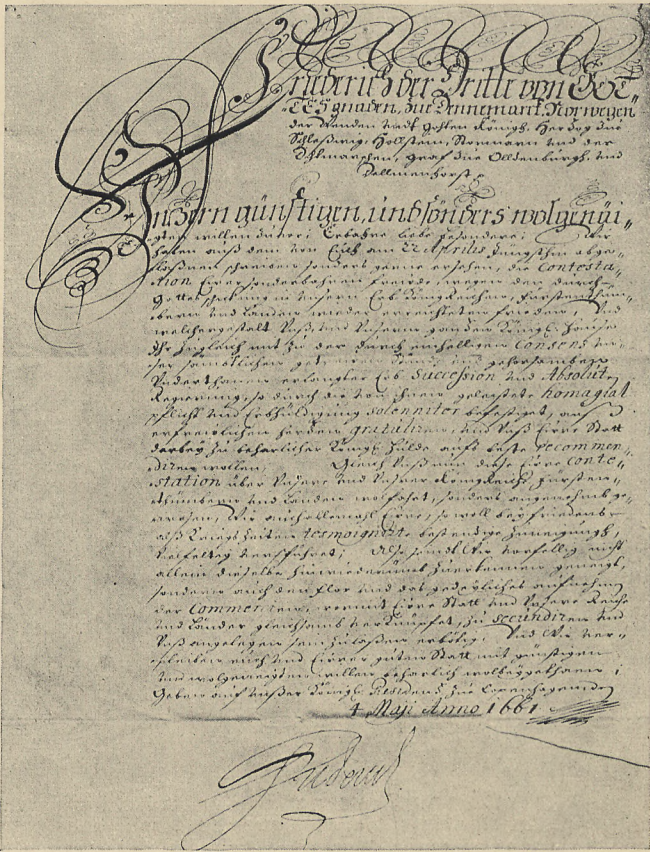 Friderich der Dritte von Got„
„TES gnaden, zue Dennemarck, Norwegen
der Wenden undt Gohten König, Hertzog zue
Schleßwig, Hollstein, Stormarn und der
Ditmarschen, Graf zue Olldenburgh und
Dellmenhorst
Unßern günstigen, und sönders wolgenei„
gten willen zuvor; Erbahre liebe besondere; Wir
haben auß dem von Euch am 22 Aprilis Jüngsthin abge„
laßnen schreiben sonders gerne ersehen, die Contesta„
„tion Eurer sonderbahren freude, wegen der durch
Gottes in Unsern Erb Königreichen, Fürstenthüm„
bern und Landen wieder erreichten frieden, Und
welchergestalt Unß und Unserm gantzen Königl. Hause
Ihr zugleich mit zu der durch einhelligen Consens un„
ser sämbtlichen und gehorsamben
Unterthanen erlangter Erb Succession und Absoluten
Regierung, so durch die von ihnen geleistete homagial
pflicht und Erbhuldigung solenniter befestiget, auß
erfreulichen hertzen gratuliren, und Unß Eure Statt
darbey zu beharlicher Königl. Hulde aufs beste recommen„
diren wollen; Gleich Unß nun diese Eure conte„
station über Unsere und Unser Königreich, Fürsten„
thümbern und Landen wolfahrt, sonders angenehmb ge„
wesen, Wir auch allemahl Eure, so woll bey friedens
alß Kriegs Zeiten tesmoignirte bestendige Zuneigung,
verspühret; Alß seindt Wir nicht
allein dieselbe hinwiederumb zuerkennen geneigt,
sondern auch den flor und das gedeyliches aufnehmen
der Commercien, womit Eure Statt und Unsere Reiche
und Länder gleichsamb verknüpfet, zu secundiren und
Unß angelegen sein zulaßen erbötig. Und Wir ver„
bleiben euch und Eurer guten Statt mit günstigen
und wolgeneigten willen beharlich wolbeygethaen;
Geben auf Unßer Königl. Residentz zue Copenhagen den
4 Maji Anno 1661
Friderich